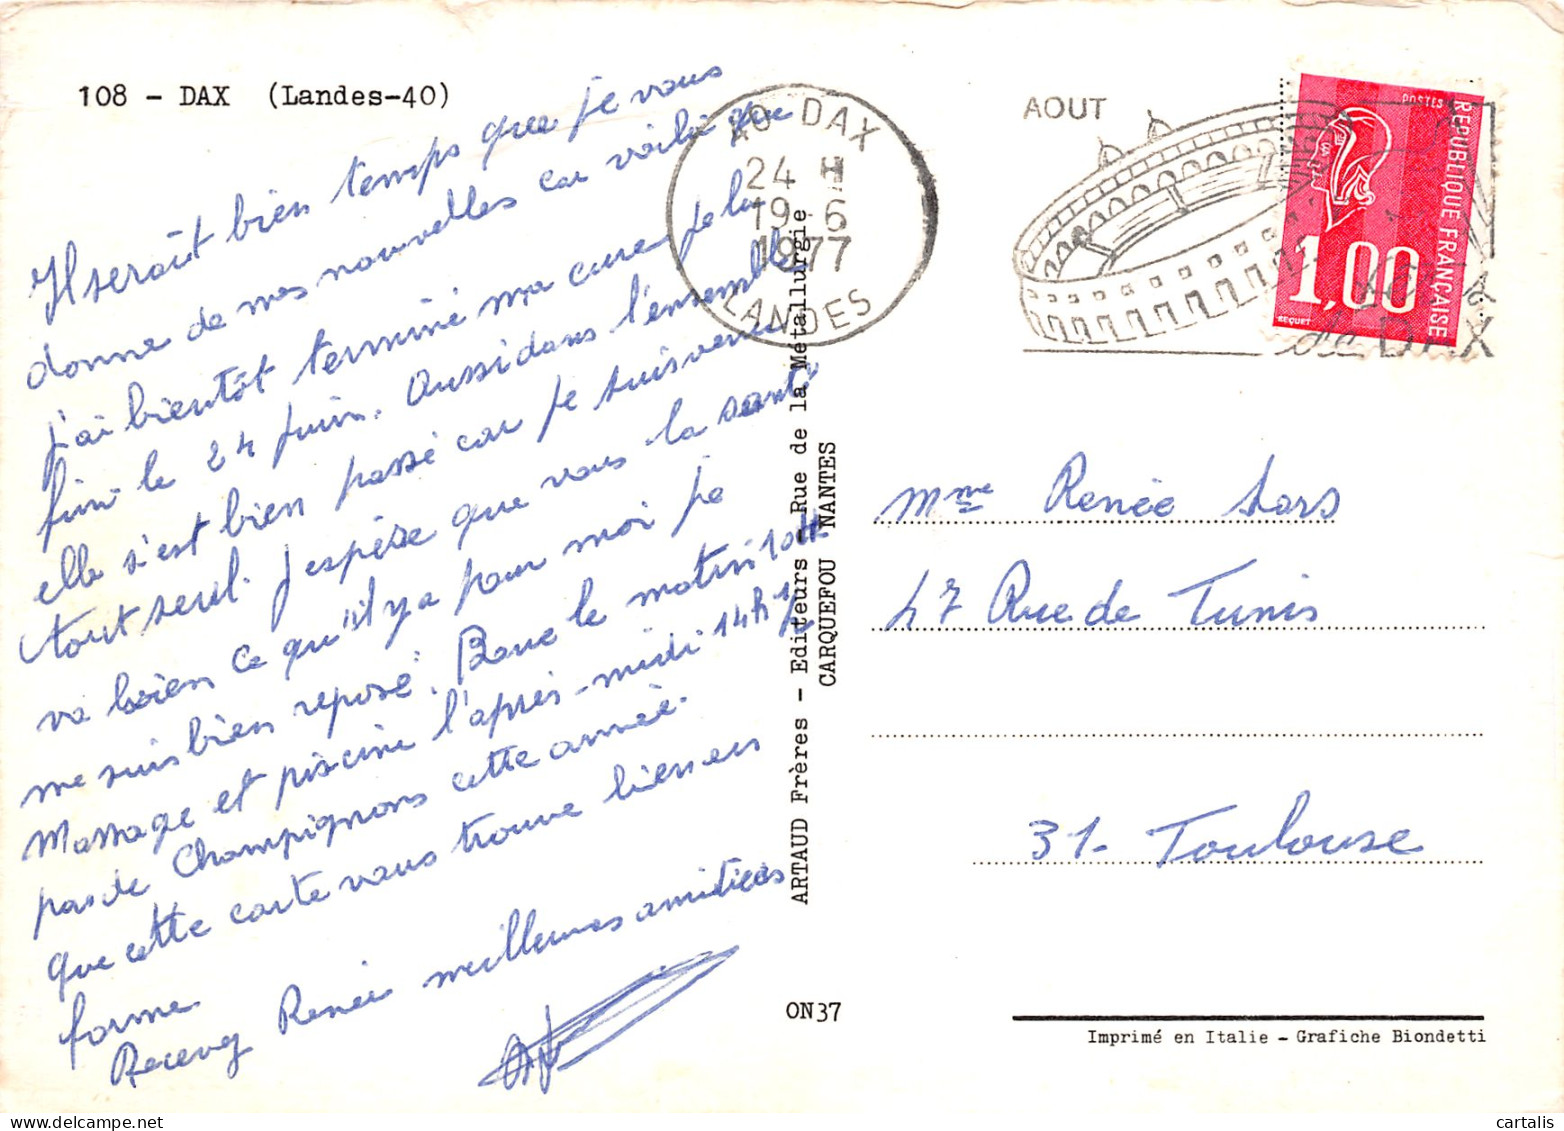 108 - DAX (Landes-40)
Il serait bien temps que je vous
donne de mes nouvelles car voilà que
j'ai bientôt terminé ma cure je la
fini le 24 juin. Aussi dans l'ensemble
elle s'est bien passé car je suis venu
tout seul. J'espère que vous la santé
va bien ce qu'il y a pour moi je
me suis bien reposé. Boue le matin 10H
Massage et piscine l'après-midi 14h 1/2
pas de Champignons cette année.
que cette carte vous trouve bien en
forme.
Recevez Renée meilleures amitiées
40-DAX
24 H
19-6
1977
LANDES
AOUT
de DAX
POSTES
REPUBLIQUE FRANÇAISE
1,00
BEQUET
ARTAUD Frères - Editeurs - Rue de la Métallurgie
CARQUEFOU NANTES
Mme Renée Lars
47 Rue de Tunis
31- Toulouse
ON37
Imprimé en Italie - Grafiche Biondetti
cartalis